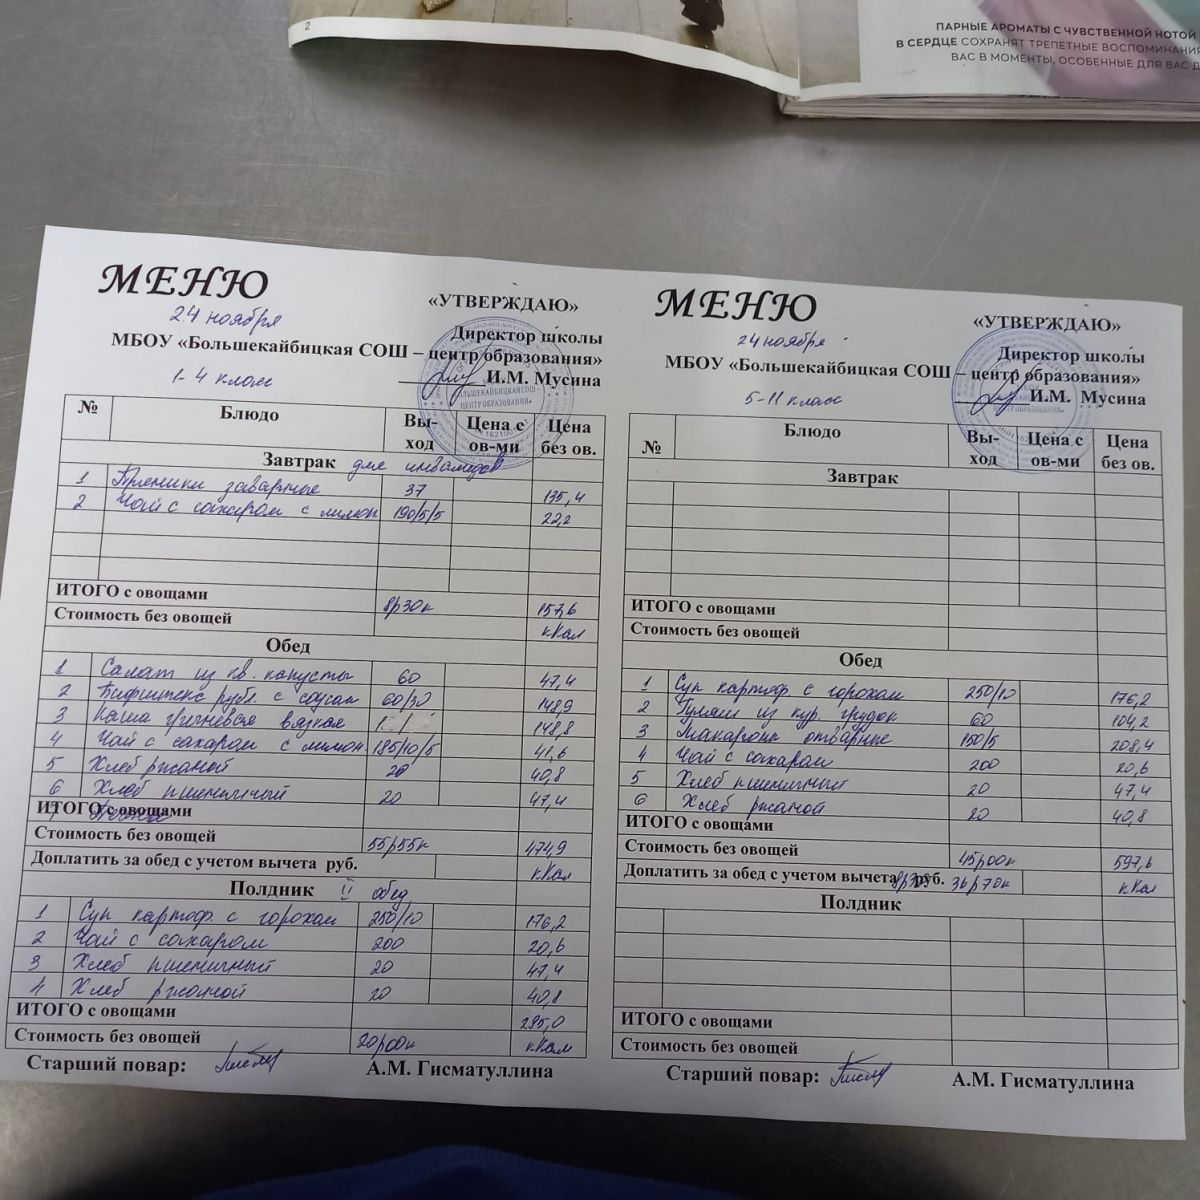 2
ПАРНЫЕ АРОМАТЫ С ЧУВСТВЕННОЙ НОТОЙ
В СЕРДЦЕ СОХРАНЯТ ТРЕПЕТНЫЕ ВОСПОМИНАНИЯ
ВАС В МОМЕНТЫ, ОСОБЕННЫЕ ДЛЯ ВАС Д
МЕНЮ
24 ноября
«УТВЕРЖДАЮ»
Директор школы
МБОУ «Большекайбицкая СОШ – центр образования»
И.М. Мусина
1-4 класс
№ Блюдо Вы-ход Цена с ов-ми Цена без ов.
Завтрак для инвалидов
1 Пряники заварные 37 135,4
2 Чай с сахаром с лимон. 190/5/5 22,2
ИТОГО с овощами 8р30к 157,6
Стоимость без овощей кКал
Обед
1 Салат из кв. капусты 60 47,4
2 Бифштекс рубл. с соусом 60/30 148,9
3 Каша гречневая вязкая 148,8
4 Чай с сахаром с лимон. 185/10/5 41,6
5 Хлеб ржаной 20 40,8
6 Хлеб пшеничный 20 47,4
7
ИТОГО с овощами
Стоимость без овощей 55р55к 474,9
Доплатить за обед с учетом вычета руб. кКал
Полдник II обед
1 Суп картоф. с горохом 250/10 176,2
2 Чай с сахаром 200 20,6
3 Хлеб пшеничный 20 47,4
4 Хлеб ржаной 20 40,8
ИТОГО с овощами 285,0
Стоимость без овощей 20р00к кКал
Старший повар: А.М. Гисматуллина
МЕНЮ
24 ноября
«УТВЕРЖДАЮ»
Директор школы
МБОУ «Большекайбицкая СОШ – центр образования»
И.М. Мусина
5-11 класс
№ Блюдо Вы-ход Цена с ов-ми Цена без ов.
Завтрак
ИТОГО с овощами
Стоимость без овощей
Обед
1 Суп картоф. с горохом 250/10 176,2
2 Гуляш из кур. грудок 60 104,2
3 Макароны отварные 150/5 208,4
4 Чай с сахаром 200 20,6
5 Хлеб пшеничный 20 47,4
6 Хлеб ржаной 20 40,8
ИТОГО с овощами
Стоимость без овощей 45р00к 597,6
Доплатить за обед с учетом вычета 8р30к руб. 36р70к кКал
Полдник
ИТОГО с овощами
Стоимость без овощей
Старший повар: А.М. Гисматуллина